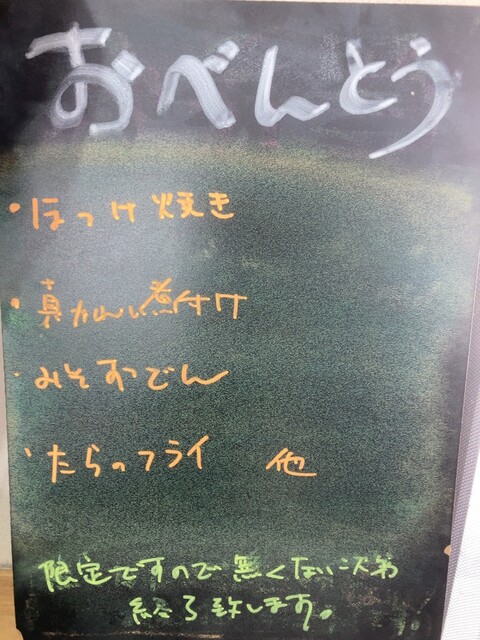 おべんとう
・ほっけ焼き
・真かれい煮付け
・みそおでん
・たらのフライ 他
限定ですので無くなり次第
終了致します。